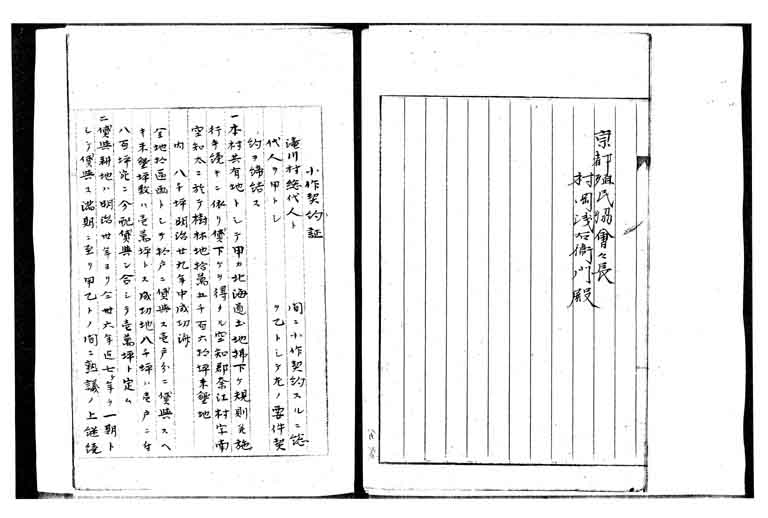 京都殖民協會々長
村岡浅右衛門殿
小作契約証
滝川村総代人ト 間ニ小作契約スルニ
代人ヲ甲トシ ヲ乙トシテ左ノ要件契
約ヲ締結ス
一本村共有地トシテ甲カ北海道土地拂下ケ規則
行手續キニ依リ貸下ケヲ得タル空知郡奈江村字南
空知太ニ於テ樹林地拾萬五千百六拾坪未墾地
内 八千坪明治廿九年中成功済
全地拾区画トシテ拾戸ニ貸與ス壱戸分ニ貸與スヘ
キ未墾坪数ハ壱萬坪トス成功地八千坪ハ壱戸ニ付
八百坪宛ニ分配貸與シ合シテ壱萬坪ト定ム
二貸與耕地ハ明治廿年ヨリ仝卅六年迄七ヶ年ヲ一期ト
シテ貸與ス満期ニ至リ甲乙トノ間ニ熟議ノ上継続